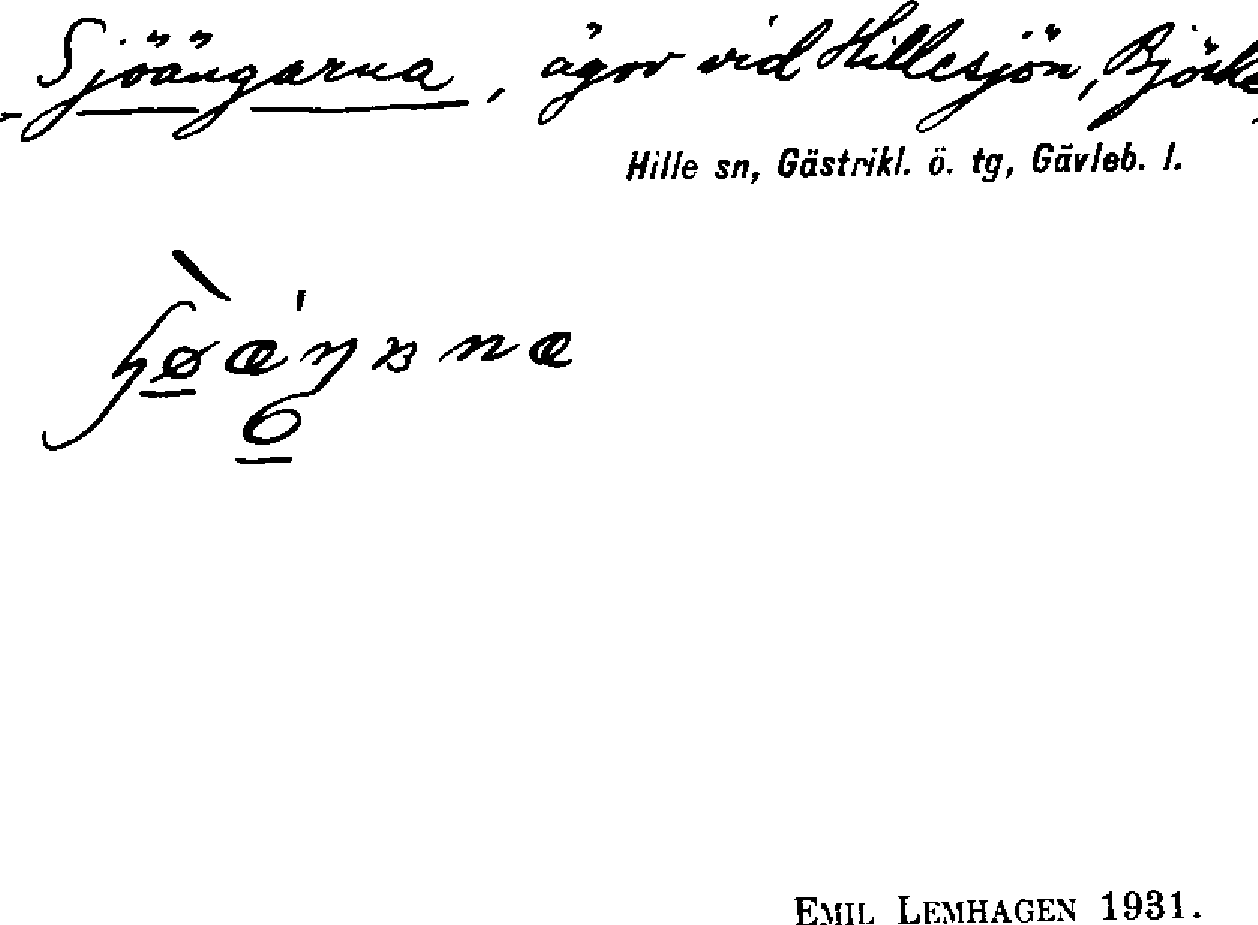 Sjöängarna, ägor vid Hillesjön, Björke,
Hille sn, Gästrikl. ö. tg, Gävleb. l.
EMIL LEMHAGEN 1931.